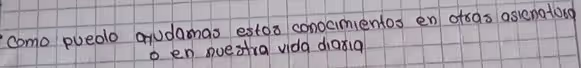 Como puedo ayudarnos estos conocimientos en otras asignaturas
o en nuestra vida diaria